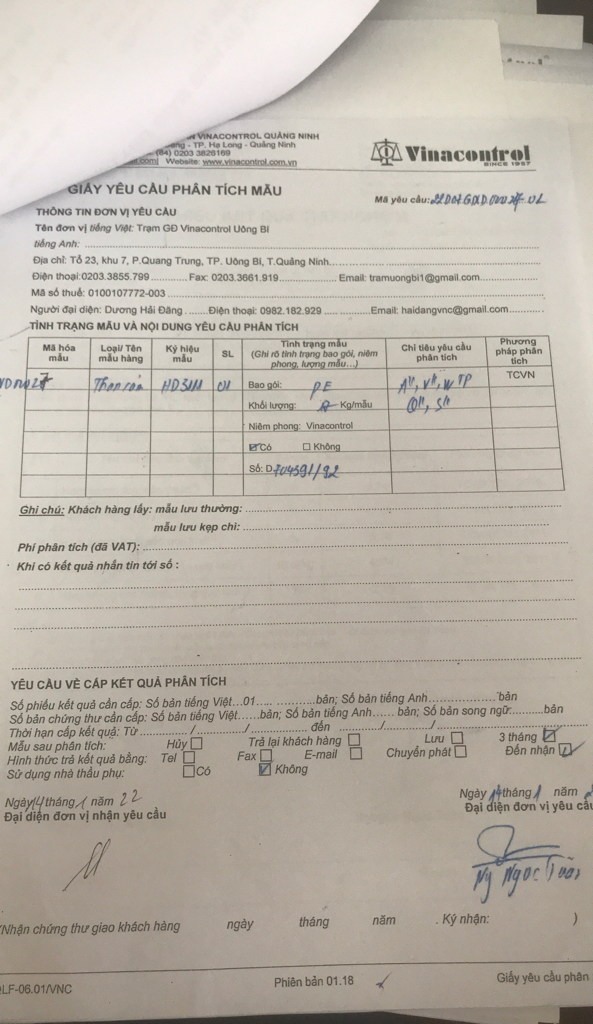 VINACONTROL QUẢNG NINH
- TP. Hạ Long - Quảng Ninh
(84) 0203 3826169
Website: www.vinacontrol.com.vn
Vinacontrol
SINCE 1957
GIẤY YÊU CẦU PHÂN TÍCH MẪU
Mã yêu cầu:
THÔNG TIN ĐƠN VỊ YÊU CẦU
Tên đơn vị tiếng Việt: Trạm GĐ Vinacontrol Uông Bí
tiếng Anh:
Địa chỉ: Tổ 23, khu 7, P.Quang Trung, TP. Uông Bí, T.Quảng Ninh
Điện thoại:0203.3855.799 Fax: 0203.3661.919 Email: tramuongbi1@gmail.com
Mã số thuế: 0100107772-003
Người đại diện: Dương Hải Đăng Điện thoại: 0982.182.929 Email: haidangvnc@gmail.com
TÌNH TRẠNG MẪU VÀ NỘI DUNG YÊU CẦU PHÂN TÍCH
Mã hóa mẫu Loại/ Tên mẫu hàng Ký hiệu mẫu SL Tình trạng mẫu (Ghi rõ tình trạng bao gói, niêm phong, lượng mẫu...) Chỉ tiêu yêu cầu phân tích Phương pháp phân tích
01 Bao gói: PE TCVN
Khối lượng: Kg/mẫu
Niêm phong: Vinacontrol
☑ Có ☐ Không
Số: D 704591/92
Ghi chú: Khách hàng lấy: mẫu lưu thường:
mẫu lưu kẹp chì:
Phí phân tích (đã VAT):
Khi có kết quả nhắn tin tới số :
YÊU CẦU VỀ CẤP KẾT QUẢ PHÂN TÍCH
Số phiếu kết quả cần cấp: Số bản tiếng Việt...01... bản; Số bản tiếng Anh bản
Số bản chứng thư cần cấp: Số bản tiếng Việt......bản; Số bản tiếng Anh...... bản; Số bản song ngữ bản
Thời hạn cấp kết quả: Từ / / đến / /
Mẫu sau phân tích: Hủy ☐ Trả lại khách hàng ☐ Lưu ☐ 3 tháng ☑
Hình thức trả kết quả bằng: Tel ☐ Fax ☐ E-mail ☐ Chuyển phát ☐ Đến nhận ☑
Sử dụng nhà thầu phụ: ☐ Có ☑ Không
Ngày 14 tháng 1 năm 22
Đại diện đơn vị nhận yêu cầu
Ngày 14 tháng 1 năm
Đại diện đơn vị yêu
Ngọc
(Nhận chứng thư giao khách hàng ngày tháng năm . Ký nhận: )
LF-06.01/VNC
Phiên bản 01.18
Giấy yêu cầu phân